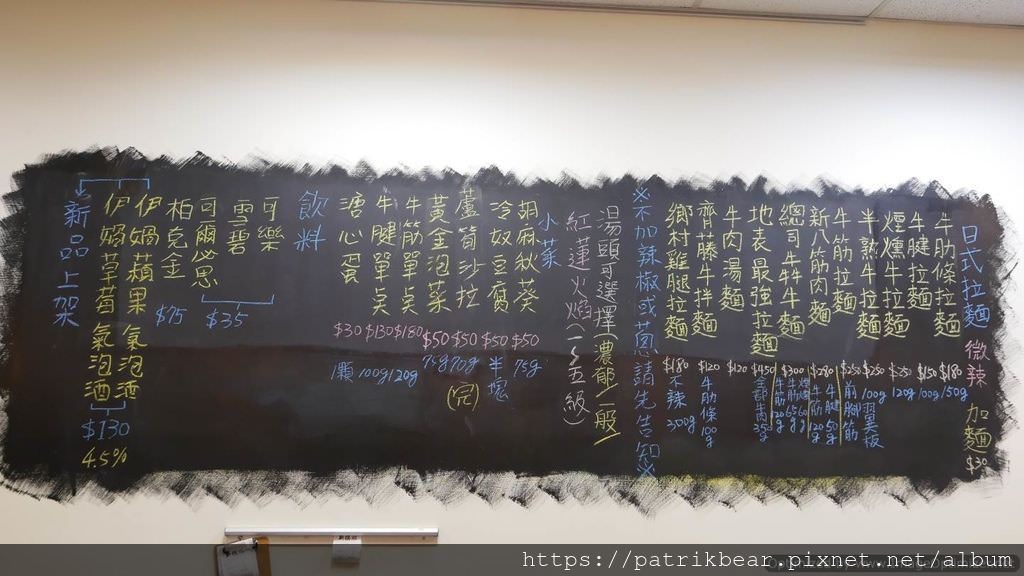 日式拉麵 微辣 加麵$30
牛肋條拉麵 $180 150g
牛腱拉麵 $150 100g
煙燻牛拉麵 $250 120g
半熟牛拉麵 $250 100g 翼板
牛筋拉麵
新八筋肉麵 $280
總司牛牪牛麵 $300
地表最強拉麵 $450
牛肉湯麵 $120
齊藤牛拌麵 $120 牛肋條100g
鄉村雞腿拉麵 $180 不辣 300g
※不加辣椒或蔥請先告知※
湯頭可選擇(濃郁/一般)
紅蓮火焰(1~五級)
小菜
胡麻秋葵 $50 75g
冷奴豆腐 $50 半塊
蘆筍沙拉 $50 70g
黃金泡菜 $50 75g
牛筋單點 $180 120g
牛腱單點 $130 100g
溏心蛋 $30 1顆
飲料
可樂
雪碧
$35
可爾必思
柏克金 $75
伊蝸蘋果氣泡酒
伊蝸草莓氣泡酒
$130
4.5%
新品上架
https://patrikbear.pixnet.net/album